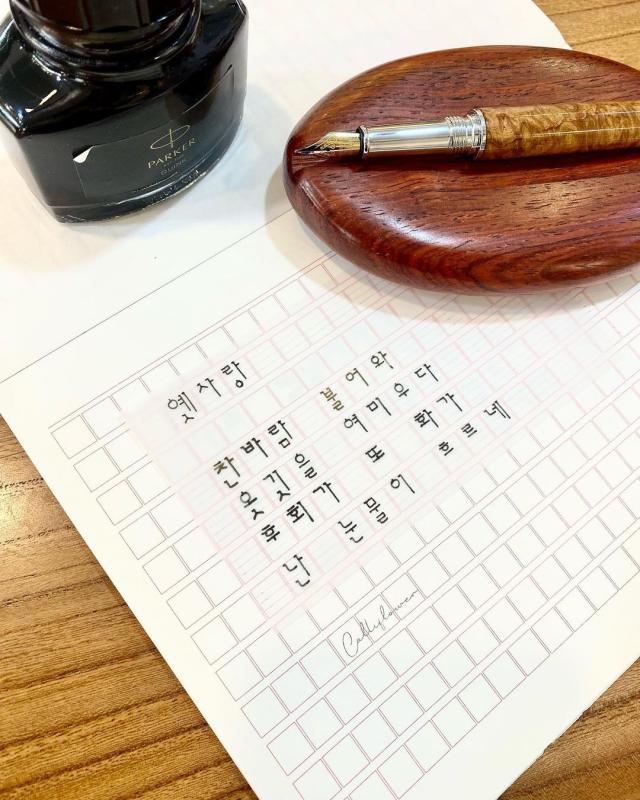 PARKER
QUINK
옛사랑
찬바람 불어와
옷깃을 여미우다
후회가 또 화가
난 눈물이 흐르네